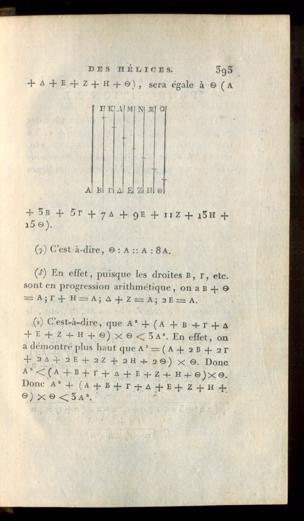 DES HÉLICES. 393
+ Δ + E + Z + H + Θ), sera égale à Θ (A
I K Λ M N Ξ O
A B Γ Δ E Z H Θ
+ 3B + 5Γ + 7Δ + 9E + 11Z + 13H +
15Θ).
(γ) C'est-à-dire, Θ : A :: A : 8A.
(δ) En effet, puisque les droites B, Γ, etc.
sont en progression arithmétique, on 2B + Θ
= A; Γ + H = A; Δ + Z = A; 2E = A.
(ε) C'est-à-dire, que A² + (A + B + Γ + Δ
+ E + Z + H + Θ) × Θ < 3A². En effet, on
a démontré plus haut que A² = (A + 2B + 2Γ
+ 2Δ + 2E + 2Z + 2H + 2Θ) × Θ. Donc
A² < (A + B + Γ + Δ + E + Z + H + Θ) × Θ.
Donc A² + (A + B + Γ + Δ + E + Z + H +
Θ) × Θ < 3A².